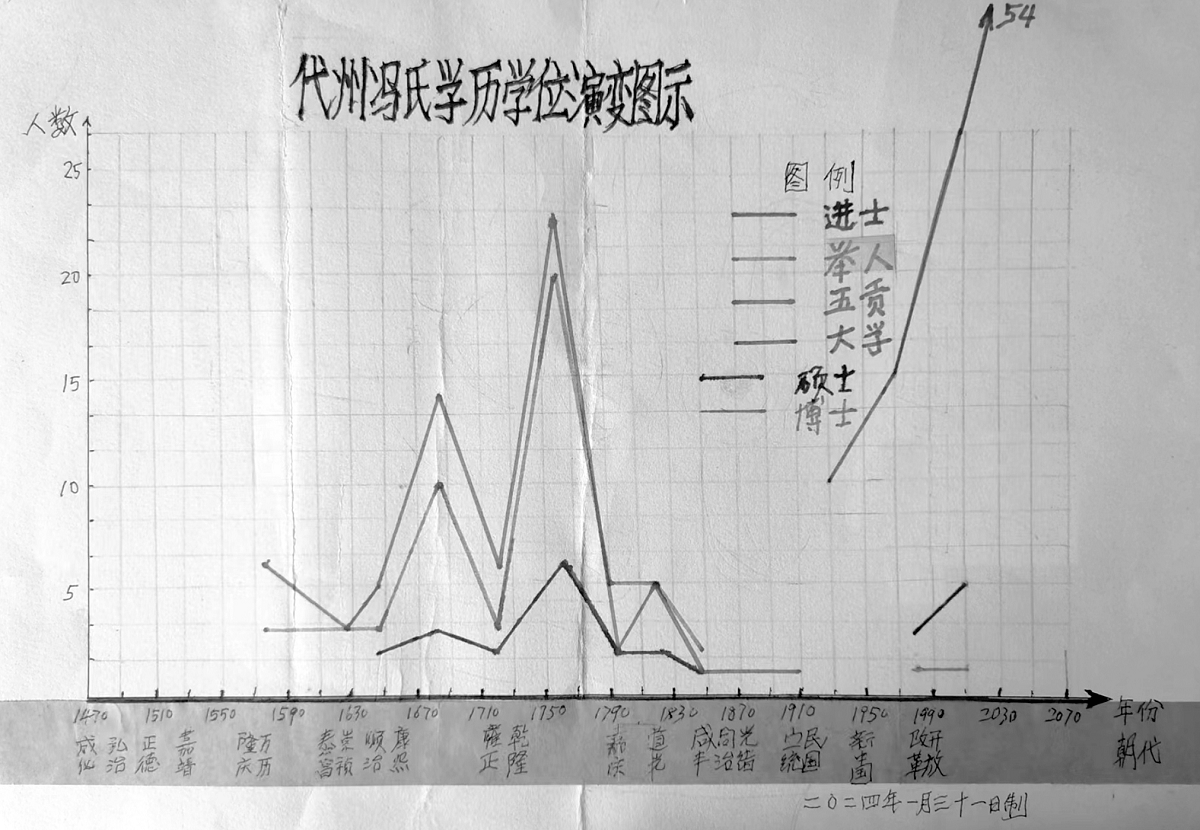 54
代州冯氏学历学位演变图示
人数
25
20
15
10
5
图例
进士
举人
五贡
大学
硕士
博士
1470 1510 1550 1590 1630 1670 1710 1750 1790 1830 1870 1910 1950 1990 2030 2070 年份
成化 弘治 正德 嘉靖 隆庆 万历 泰昌 崇祯 顺治 康熙 雍正 乾隆 嘉庆 道光 咸丰 同治 光绪 宣统 民国 新国 改革 开放 朝代
二〇二四年一月三十一日制